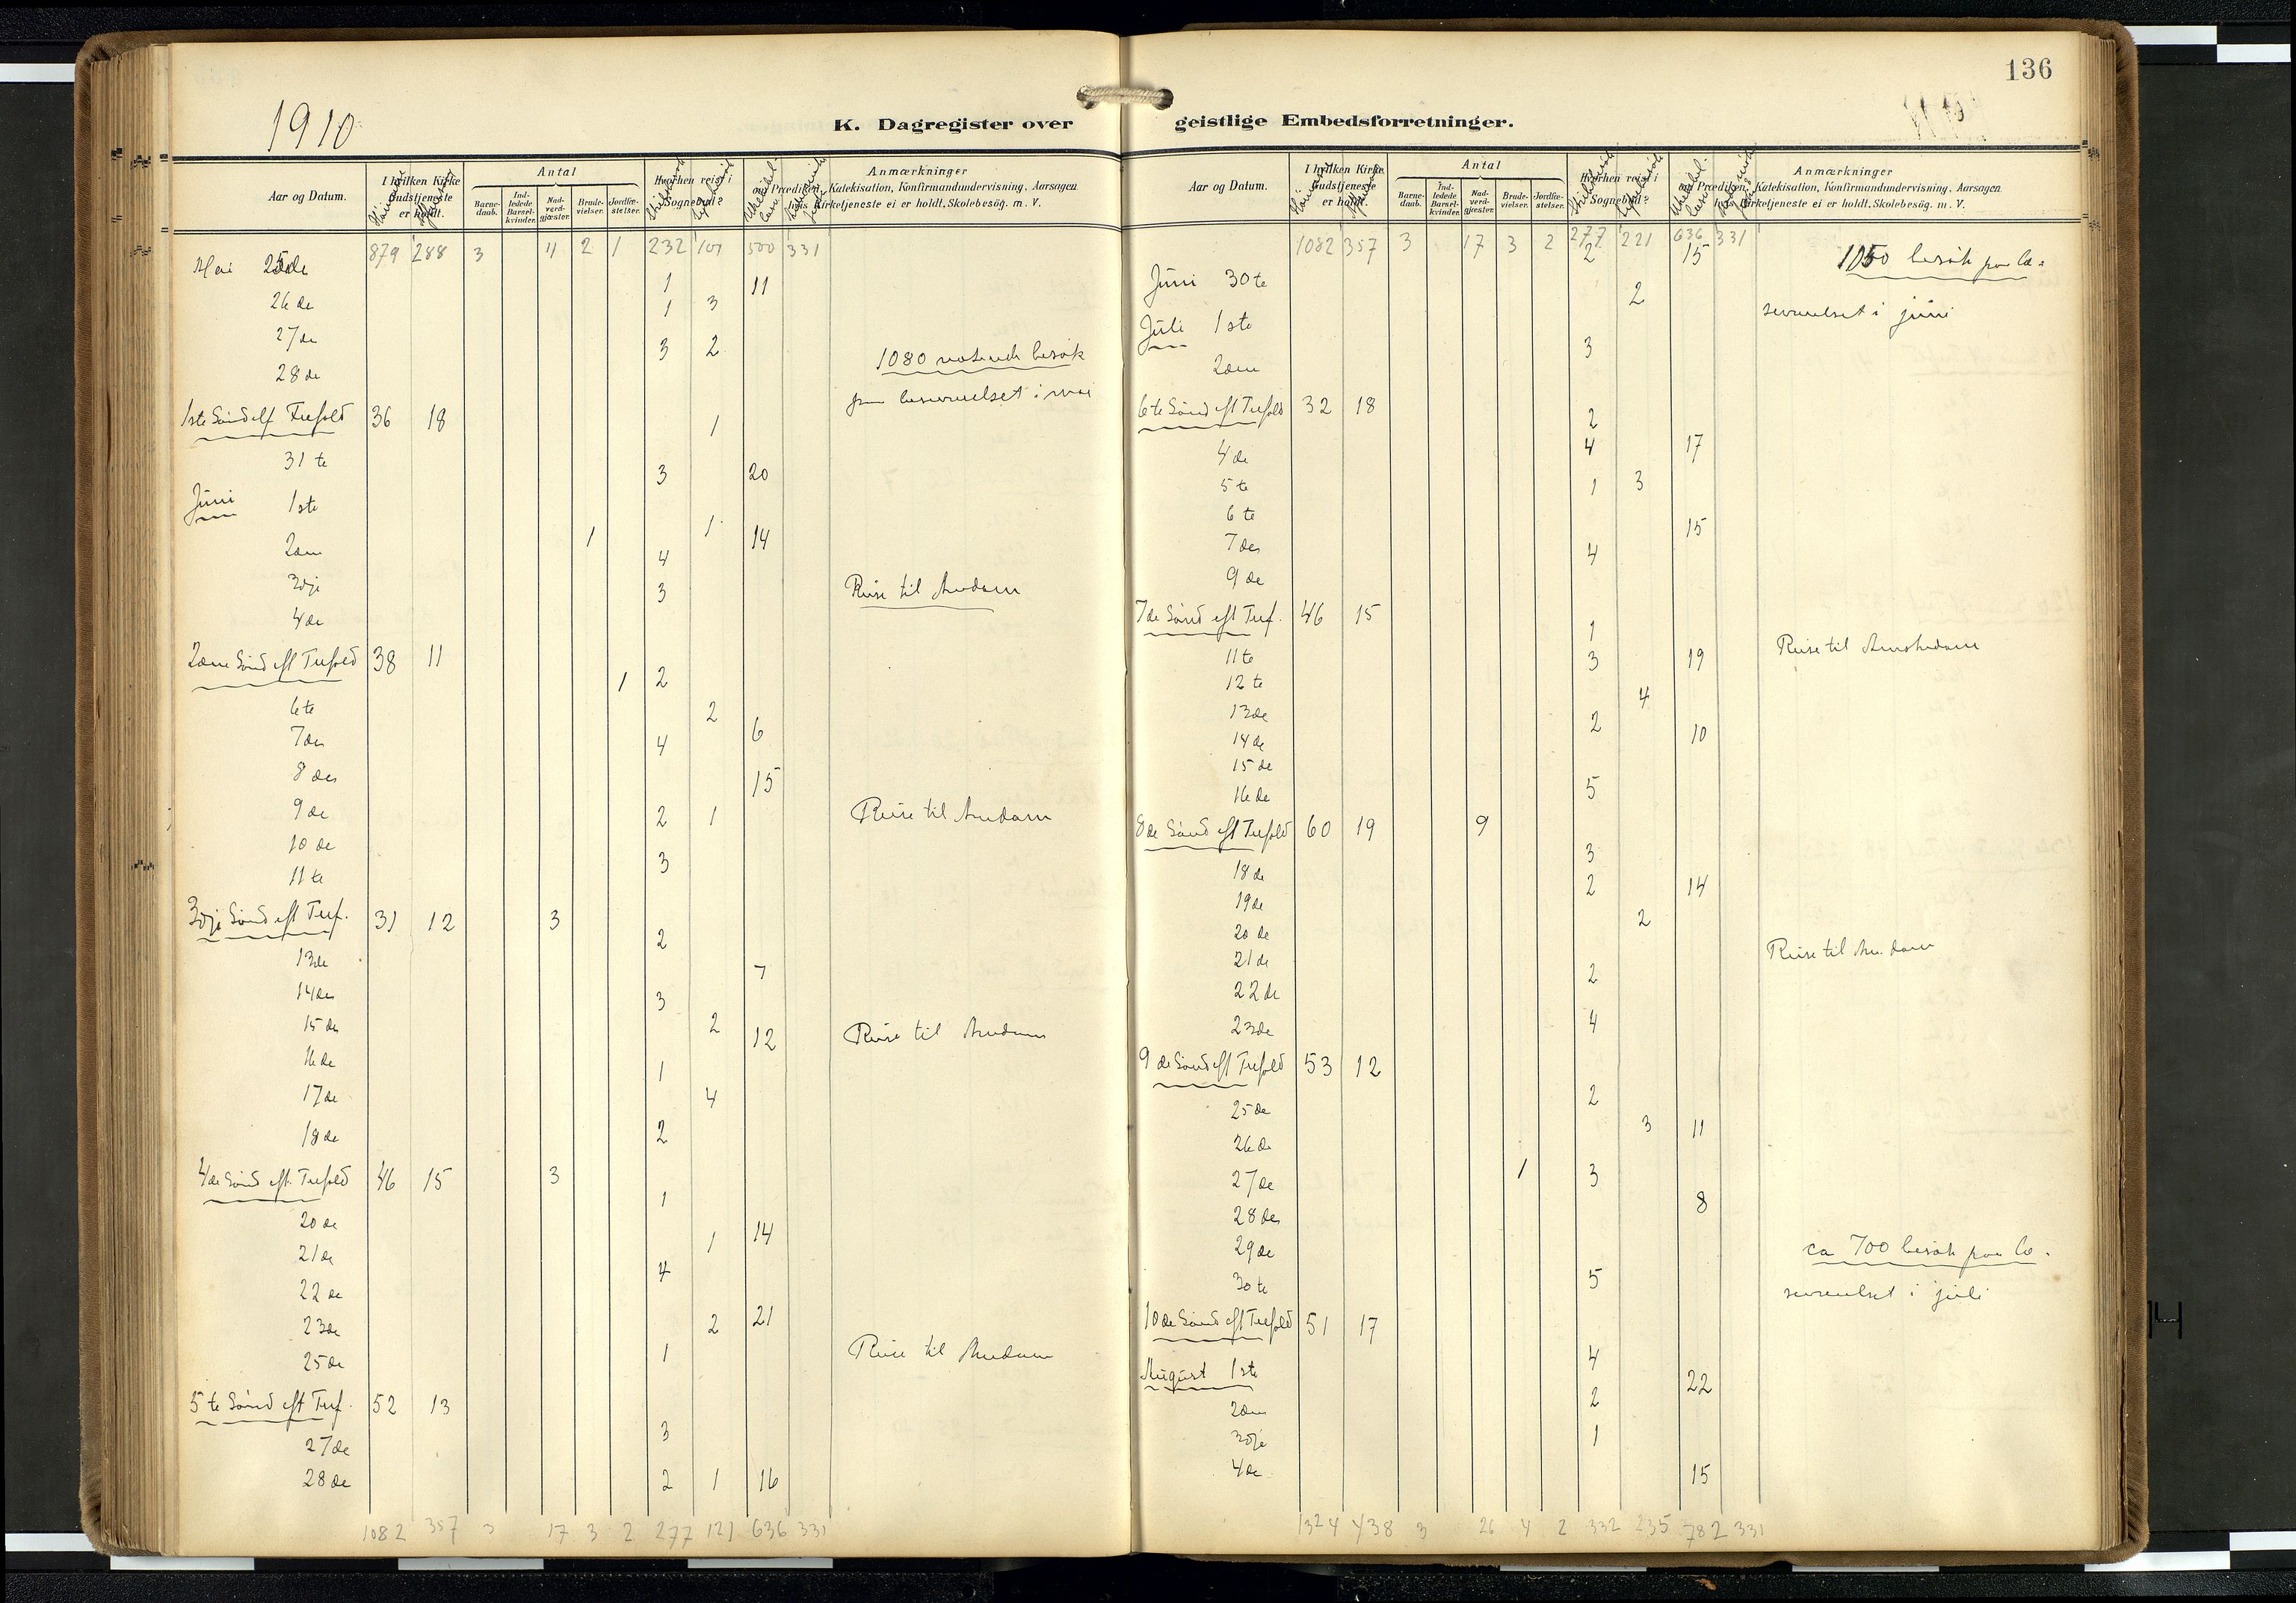 136
1910
K. Dagregister over geistlige Embedsforretninger.
Aar og Datum.
I hvilken Kirke Gudstjeneste er holdt.
Antal
Barne-daab.
Ind-ledede Barsel-kvinder.
Nad-verd-gjæster.
Brude-vielser.
Jordfæ-stelser.
Hvorhen reist i Sognebud?
Anmærkninger
om Prædiken, Katekisation, Konfirmandundervisning, Aarsagen
hvis Kirketjeneste ei er holdt, Skolebesøg. m. V.
879 288 3 11 2 1 232 101 500 331
Mai 25de
1 11
26de
1 3
27de
3 2
28de
1080 besøk
paa læseværelset i mai
1ste Sønd eft Trefold 36 18
1
31te
3 20
Juni 1ste
1 1 14
2den
4
3dje
3 Reise til Amdam
4de
2den Sønd eft Trefold 38 11
1 2
6te
2
7de
4 6
8de
15
9de
2 1 Reise til Amdam
10de
3
11te
3dje Sønd eft Tref. 31 12 3
2
13de
7
14de
3
15de
2 12 Reise til Amdam
16de
1
17de
4
18de
2
4de Sønd eft. Trefold 46 15 3
1
20de
1 14
21de
4
22de
23de
2 21
25de
1 Reise til Amdam
5te Sønd eft Tref. 52 13
3
27de
28de
2 1 16
1082 357 3 17 3 2 277 121 636 331
Aar og Datum.
I hvilken Kirke Gudstjeneste er holdt.
Antal
Barne-daab.
Ind-ledede Barsel-kvinder.
Nad-verd-gjæster.
Brude-vielser.
Jordfæ-stelser.
Hvorhen reist i Sognebud?
Anmærkninger
om Prædiken, Katekisation, Konfirmandundervisning, Aarsagen
hvis Kirketjeneste ei er holdt, Skolebesøg. m. V.
1082 357 3 17 3 2 277 221 636 331
2 15 1050 besøk paa læ-
Juni 30te
2 seværelset i juni
Juli 1ste
3
2den
6te Sønd eft Trefold 32 18
2
4 17
4de
5te
1 3
6te
15
7de
4
9de
7de Sønd eft Tref. 46 15
1
11te
3 19 Reise til Amsterdam
12te
4
13de
2 10
14de
15de
5
16de
8de Sønd eft Trefold 60 19 9
3
18de
2 14
19de
2
20de
Reise til Am.dam
21de
2
22de
23de
4
9de Sønd eft Trefold 53 12
2
25de
3 11
26de
27de
1 3
8
28de
29de
ca 700 besøk paa læ-
30te
5 seværelset i juli
10de Sønd eft Trefold 51 17
4
August 1ste
22
2
2den
3dje
1
4de
15
1324 438 3 26 4 2 332 235 782 331